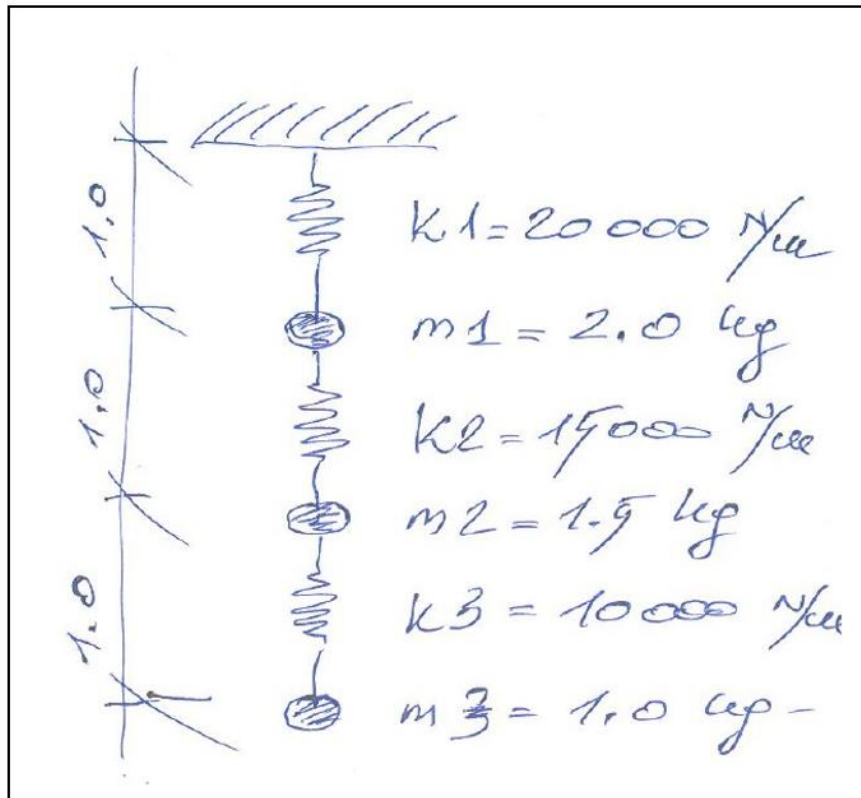 1,0
1,0
1.0
K1 = 20 000 N/m
m1 = 2.0 kg
K2 = 15000 N/m
m2 = 1.5 kg
K3 = 10000 N/m
m3 = 1.0 kg